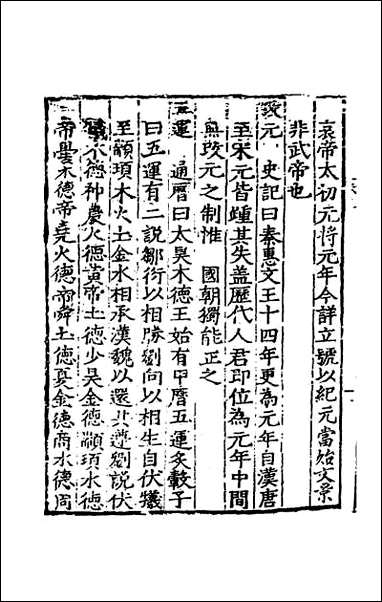 哀帝太初元将元年今詳立號以紀元當始文景
非武帝也
改元　史記曰秦惠文王十四年更為元年自漢唐
至宋元皆踵其失盖歷代人君即位為元年中間
無改元之制惟　國朝獨能正之
五運　通曆曰太昊木德王始有甲曆五運文轂子
曰五運有二說鄒衍以相勝劉向以相生自伏犧
至顓頊木火土金水相承漢魏以還共遵劉說伏
羲木德神農火德黃帝土德少昊金德顓頊水德
帝嚳木德帝堯火德帝舜土德夏金德商水德周